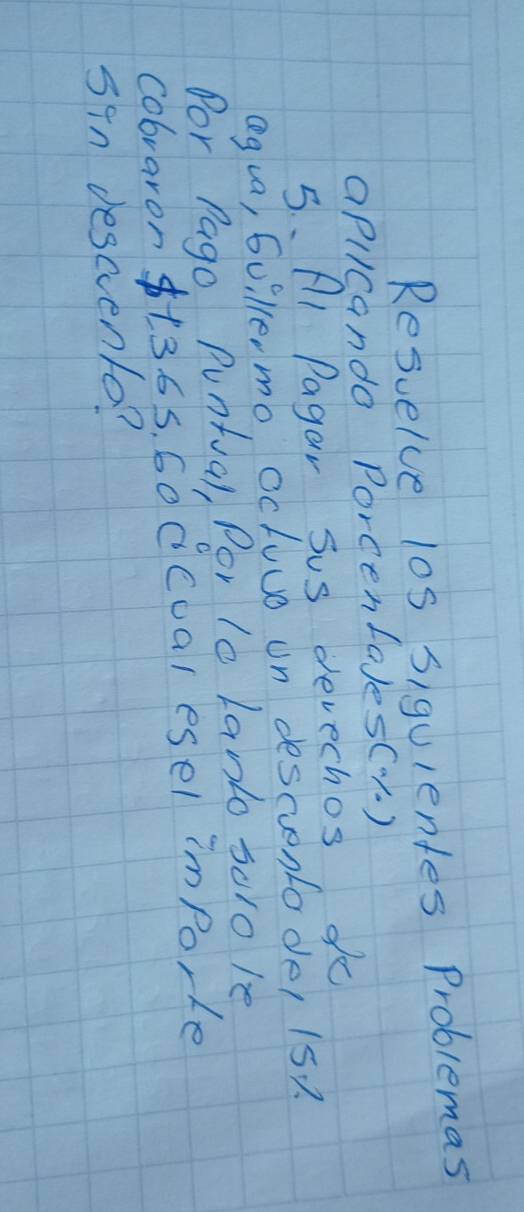 Resuelve los siguientes Problemas
aplicando Porcentajes(%)
5.- Al Pagar sus derechos de
agua, Guillermo octuvo un descuento del 15%
Por Pago Puntual, Por lo tanto solo le
cobraron $1.365.60 ¿cual es el importe
sin descuento?